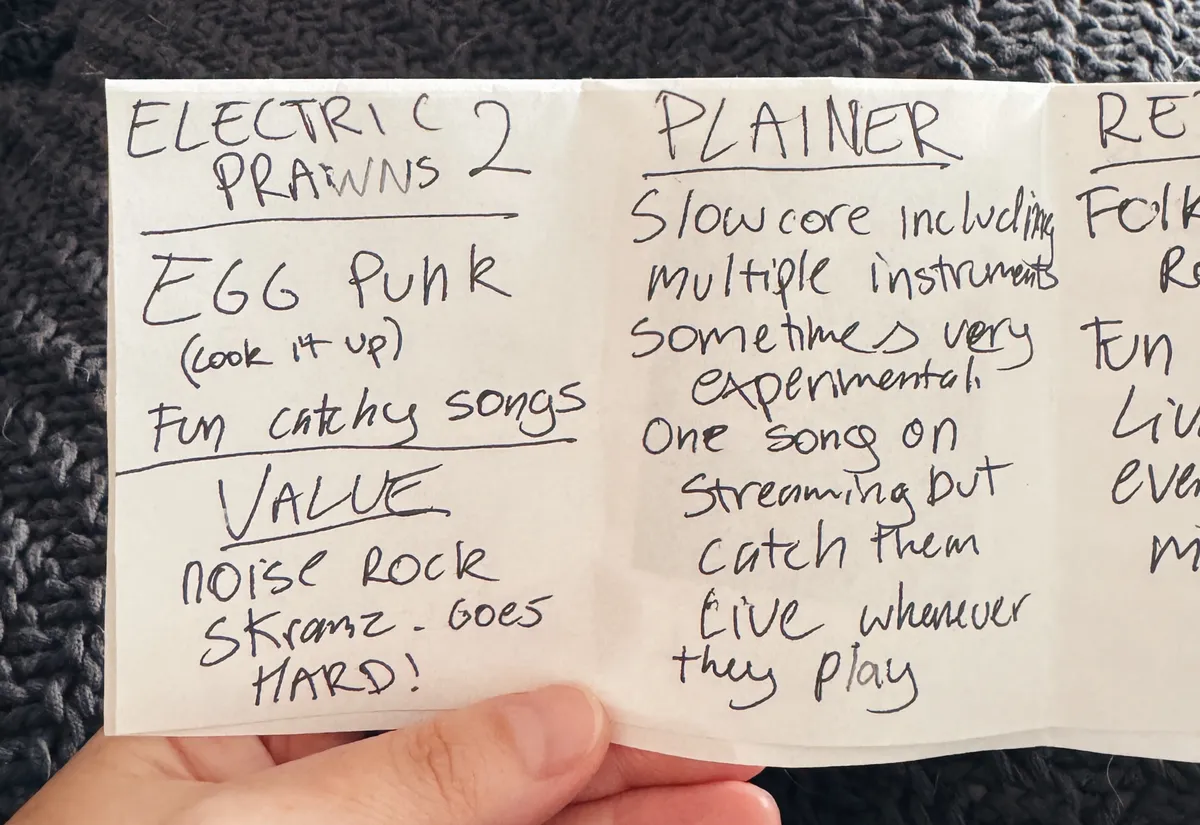 ELECTRIC
PRAWNS 2
EGG PUNK
(cook it up)
Fun catchy songs
VALUE
noise Rock
Skramz. GOES
HARD!
PLAINER
Slowcore including
multiple instruments
sometimes very
experimental.
One song on
streaming but
catch them
Live whenever
they play
RE
Folk
Ro
Fun
Liv
even
mi